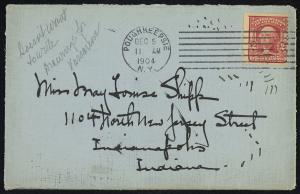 POUGHKEEPSIE
DEC 5
11 AM
1904
N.Y.
Miss May Louise Shipp
1104 North New Jersey Street
Indianapolis
Indiana